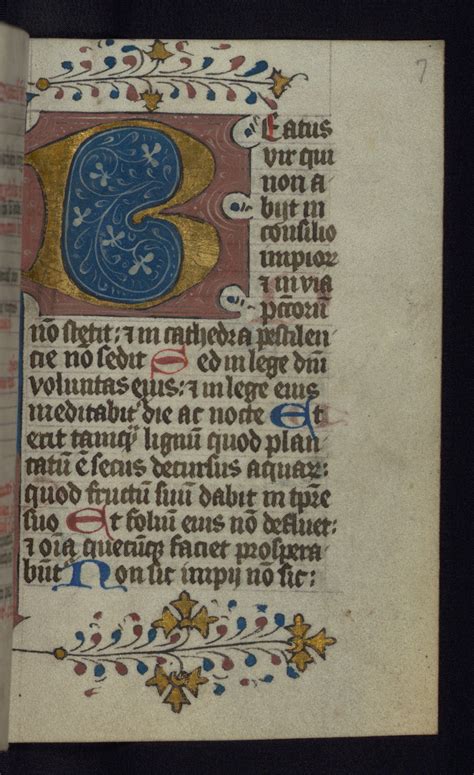 7
Beatus
vir qui
non a
bijt in
consilio
impior
⁊ in via
pc̄coru̅
no̅ stetit: ⁊ in cathedra pestilen
cie no̅ sedit Sed in lege dn̅i
voluntas eius: ⁊ in lege eius
meditabit᷑ die ac nocte Et
erit tamq̅ lignu̅ quod plan
tatu̅ e̅ secus decursus aquar:
quod fructu̅ suu̅ dabit in tp̅re
suo Et foliu̅ eius no̅ defluet:
⁊ oi̅a quecu̅q̨ faciet prospera
bu̅t᷑ Non sic impij no̅ sic: